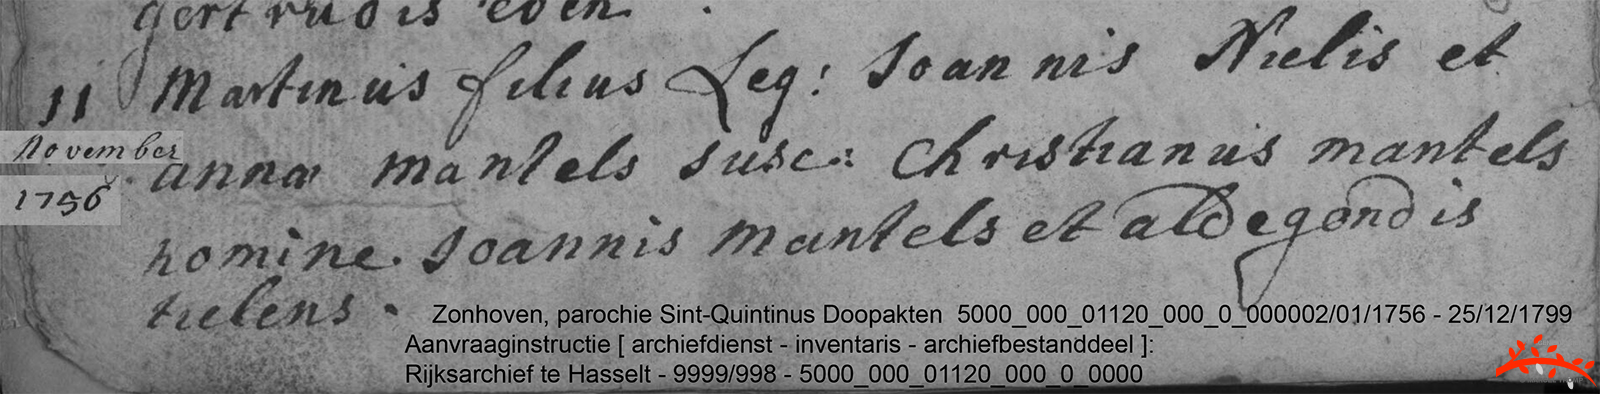 gertrudis even.
11 Martinus filius Leg: Joannis Nielis et
november
anna mantels susc: Christianus mantels
1756
nomine Joannis Mantels et aldegondis
tielens.
Zonhoven, parochie Sint-Quintinus Doopakten 5000_000_01120_000_0_000002/01/1756 - 25/12/1799
Aanvraaginstructie [ archiefdienst - inventaris - archiefbestanddeel ]:
Rijksarchief te Hasselt - 9999/998 - 5000_000_01120_000_0_0000